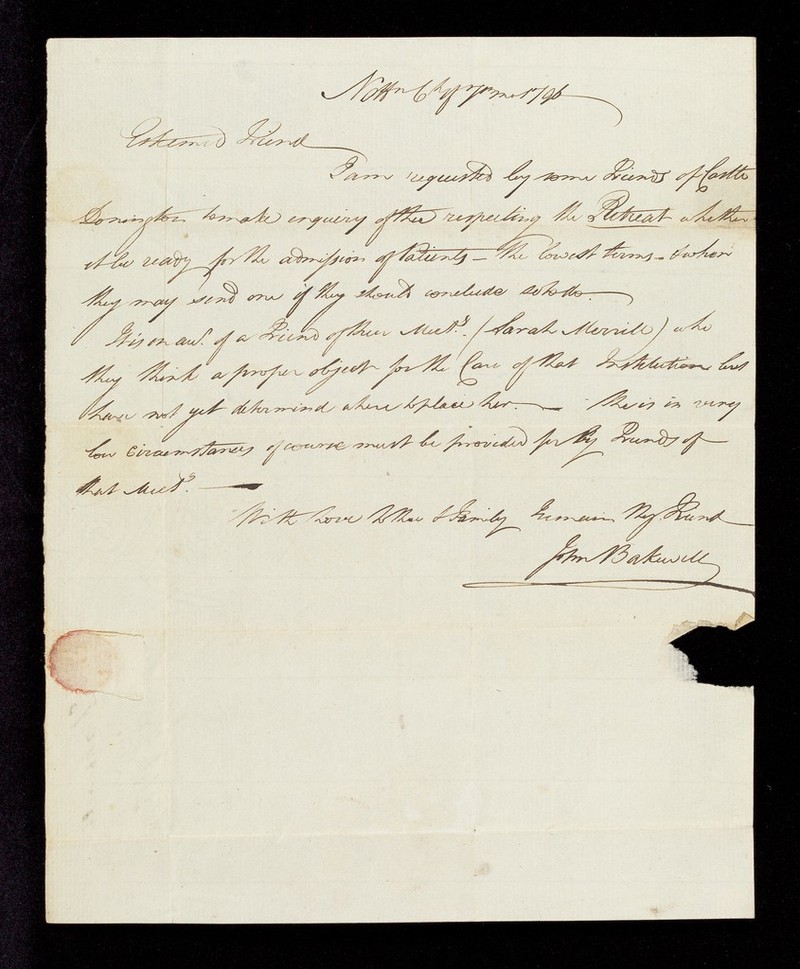 Nottm 6th of 7mo 1796
Esteemed Friend
I am requested by some Friends of Castle
Donington to make enquiry of thee respecting the Retreat whether
it be ready for the admission of Patients - the lowest terms - & when
they may send one if they should conclude so to do.
It is on acct. of a Friend of their Meetg. (Sarah Merrill) who
they think a proper object for the Care of that Institution but
have not yet determind where to place her. - She is in very
low circumstances of course must be provided for by Friends of
that Meetg. -
With Love to thee & Family I remain Thy Friend
John Bakewell